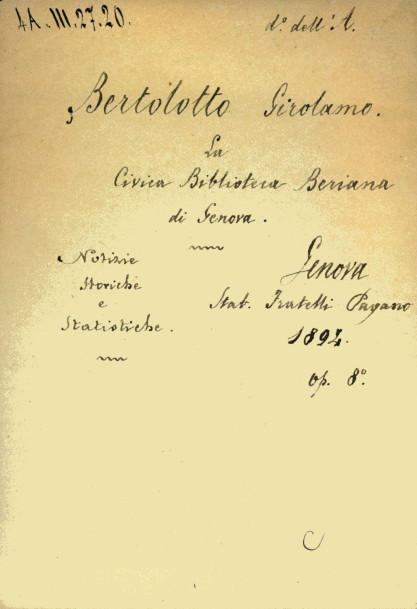 4A.III.27.20.
d.º dell'A.
Bertolotto Girolamo.
La
Civica Biblioteca Beriana
di Genova.
Notizie
Storiche
e
Statistiche.
Genova
Stab. Fratelli Pagano
1894.
op. 8º.
C